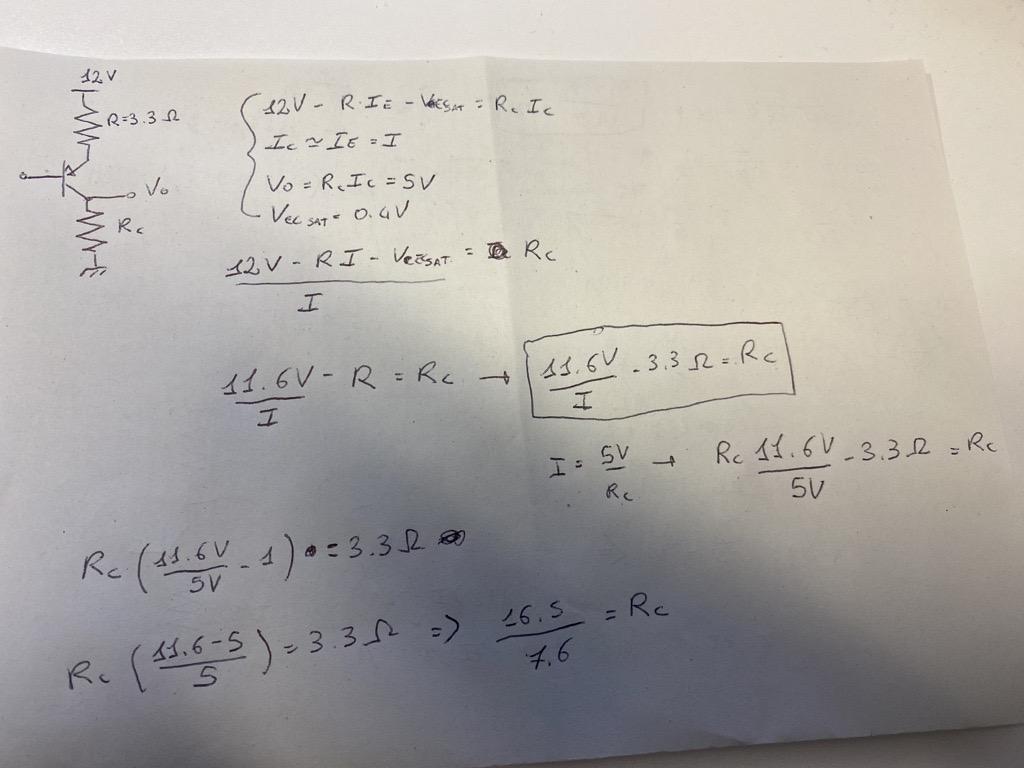 12V
R=3.3 Ω
Vo
Rc
12V - R·IE - VECSAT = Rc Ic
Ic ≃ IE = I
Vo = Rc Ic = 5V
VEC SAT = 0.4V
12V - RI - VECSAT = Rc
I
11.6V - R = Rc →
I
11.6V - 3.3 Ω = Rc
I
I = 5V → Rc 11.6V - 3.3 Ω = Rc
Rc 5V
Rc (11.6V - 1) = 3.3 Ω
5V
Rc (11.6-5) = 3.3 Ω => 16.5 = Rc
5 7.6